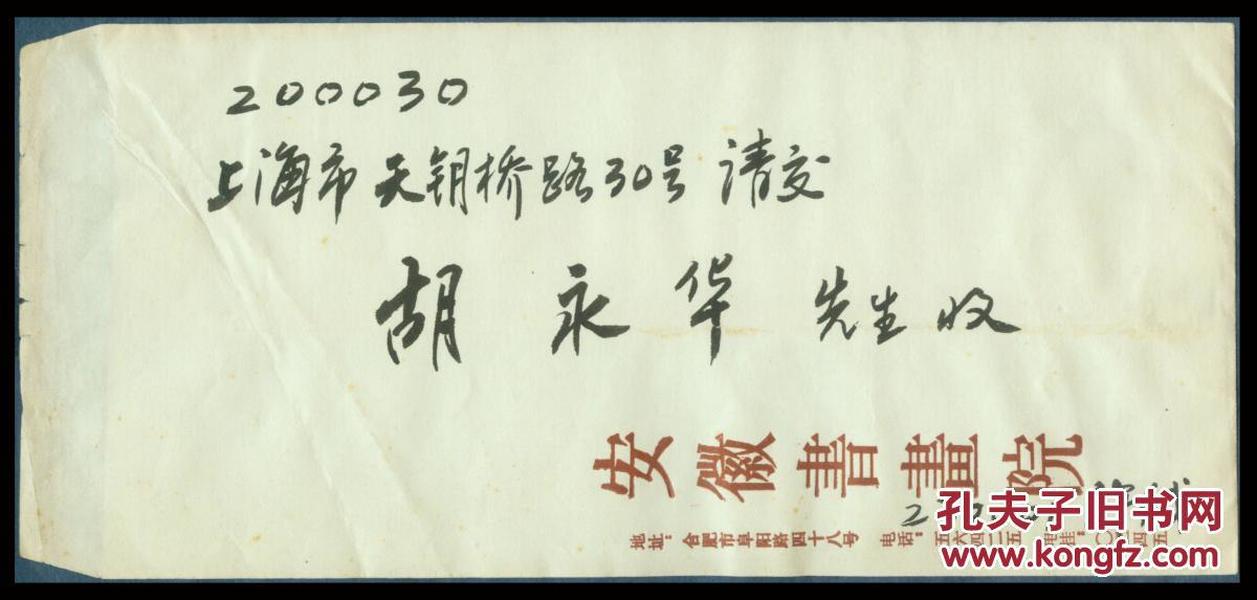 200030
上海市天钥桥路30号 请交
胡永华 先生收
安徽書畫院
地址：合肥市阜阳路四十八号 电话：
孔夫子旧书网
www.kongfz.com